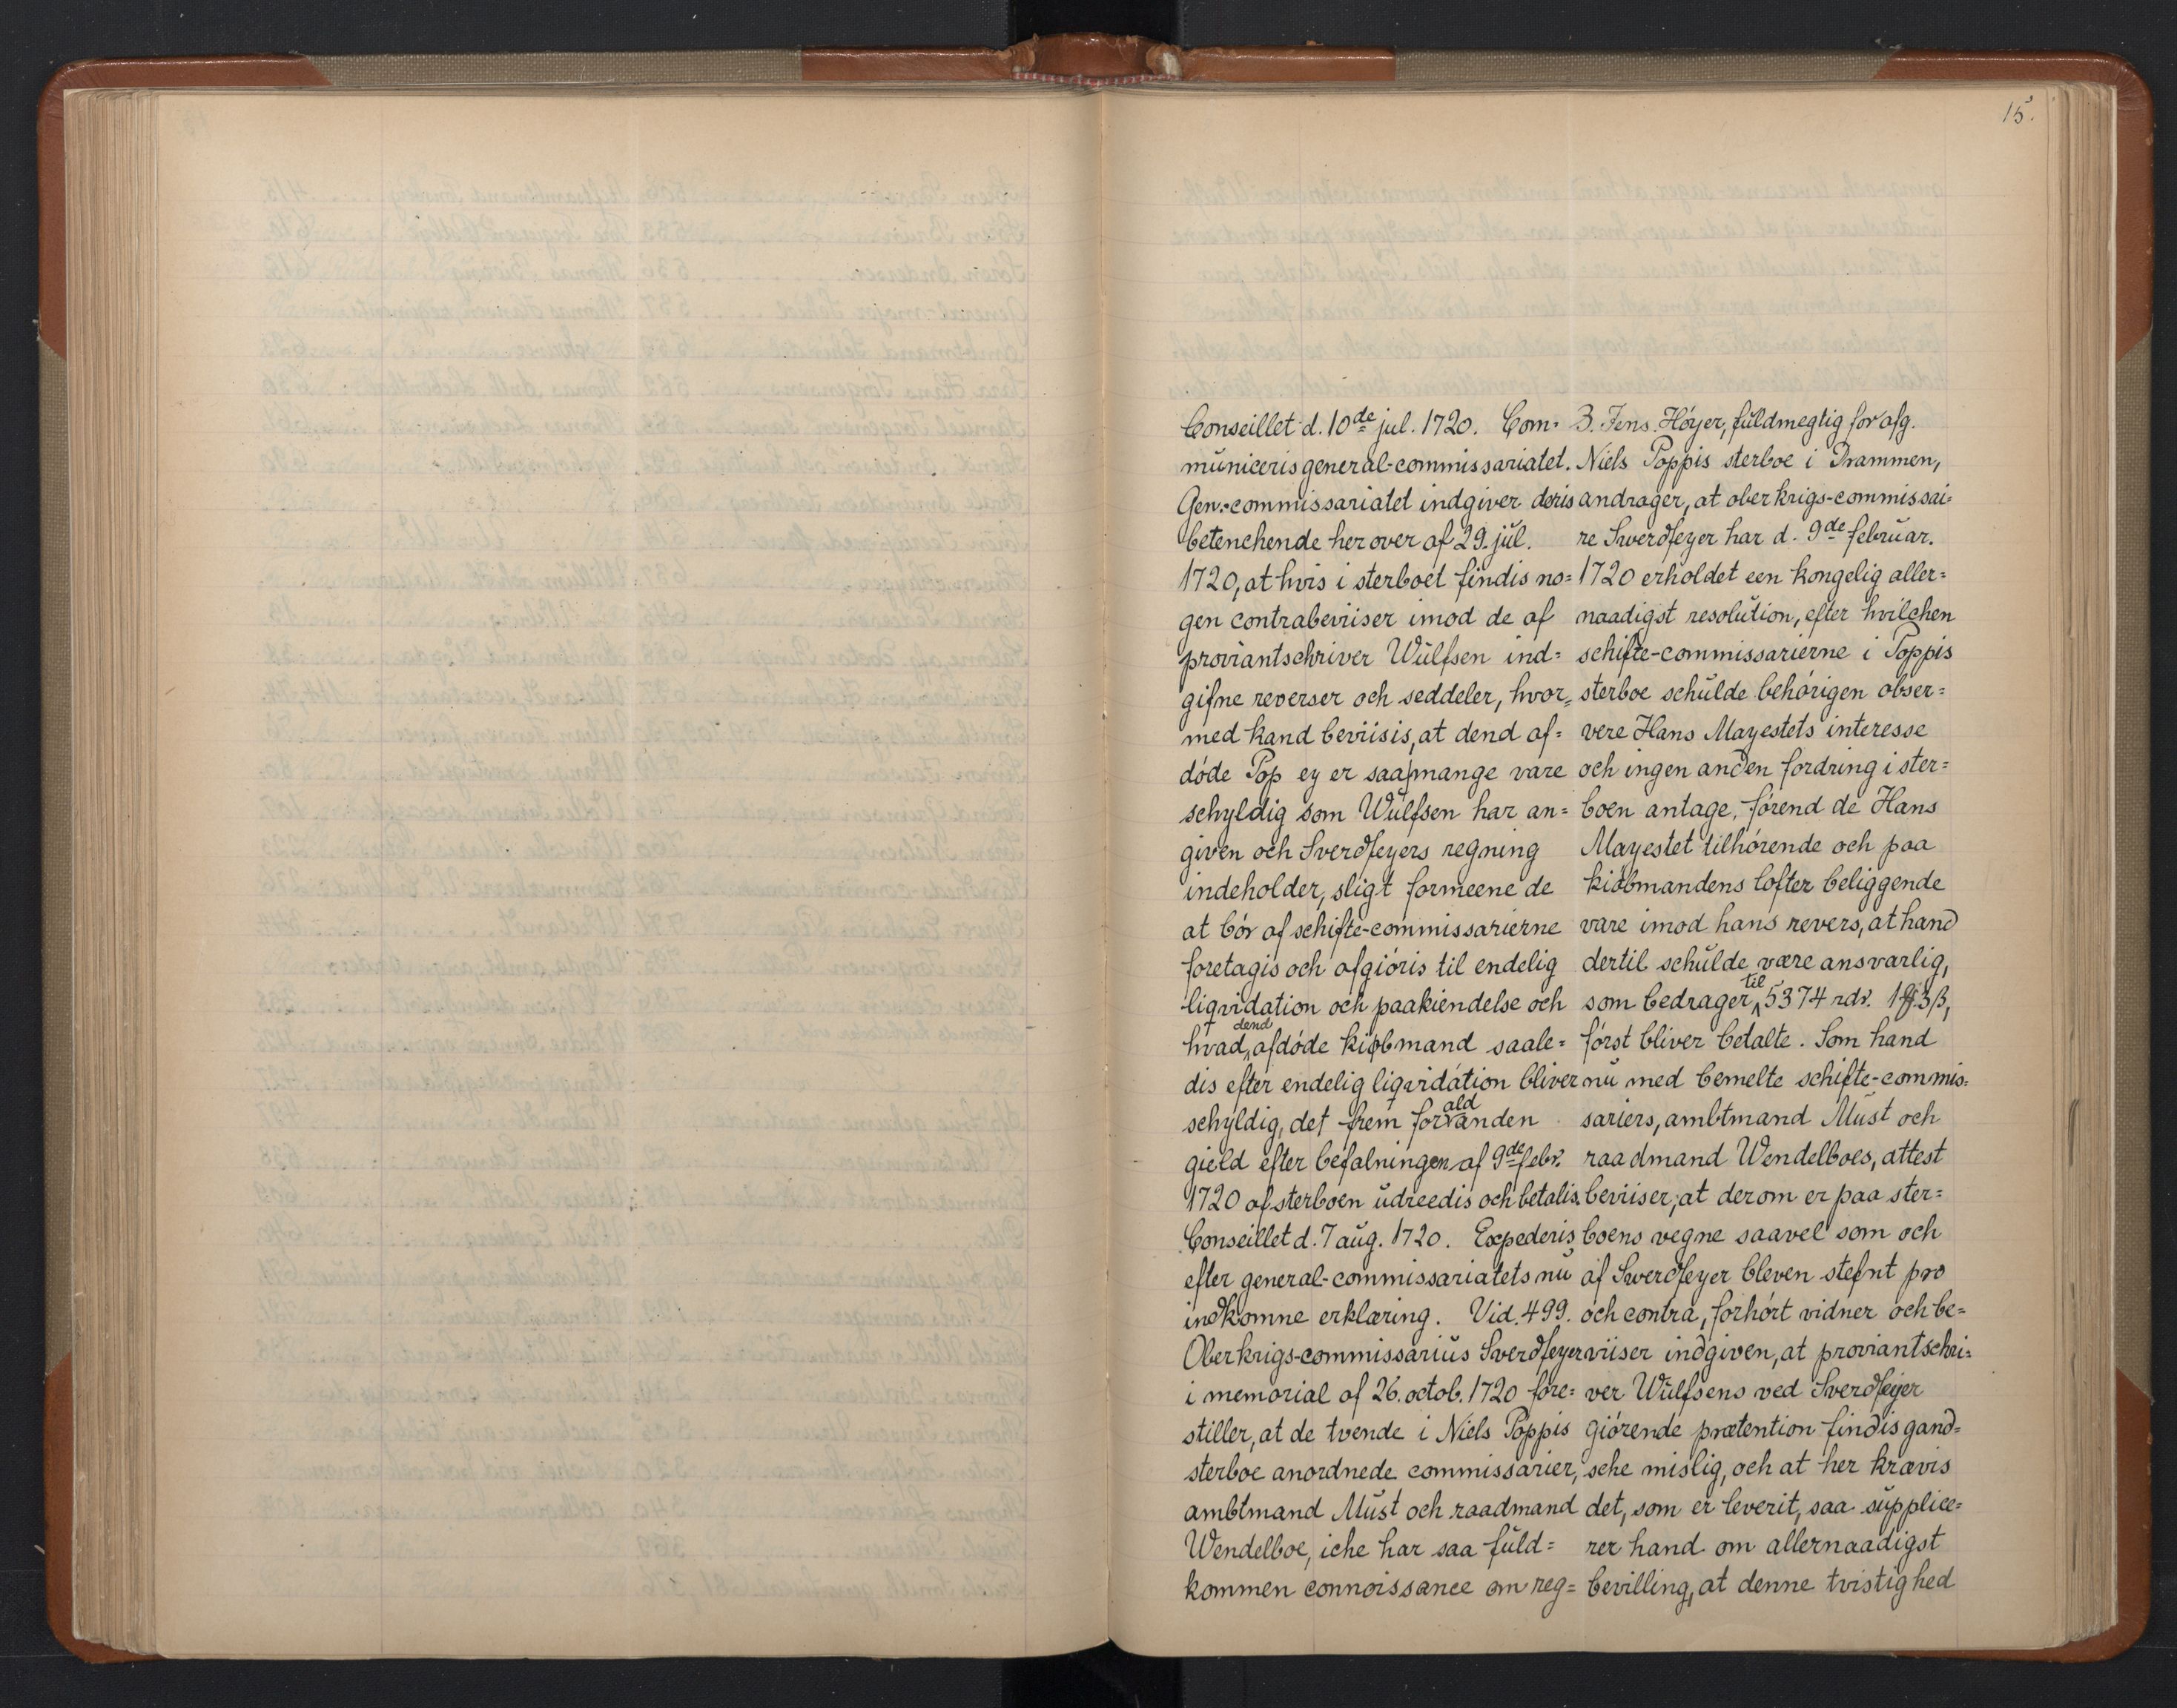 15.
Conseillet d. 10de jul. 1720. Com-
municeris general-commissariatet.
Gen.-commissariatet indgiver deris
betenchende herover af 29. jul.
1720, at hvis i sterboet findis no=
gen contrabeviiser imod de af
proviantschriver Wulfsen ind=
gifne reverser och seddeler, hvor=
med kand beviisis, at dend af=
døde Pop ey er saa mange vare
schyldig som Wulfsen har an=
given och Sverdfeyers regning
indeholder, sligt formeene de
at bór af schifte-commissarierne
foretagis och afgióris til endelig
liqvidation och paakiendelse och
hvad dend afdóde kiøbmand saale=
dis efter endelig liqvidation bliver
schyldig, det frem for ald anden
gield efter befalningen af 9de febr.
1720 af sterboen udreedis och betalis.
Conseillet d. 7 aug. 1720. Expederis
efter general-commissariatets nu
indkomne erklæring. Vid. 499.
Oberkrigs-commissarius Sverdfeyer
i memorial af 26. octob. 1720 fore=
stiller, at de tvende i Niels Poppis
sterboe anordnede commissarier,
ambtmand Must och raadmand
Wendelboe, iche har saa fuld=
kommen connoissance om reg=
3. Jens Hóyer, fuldmegtig for afg.
Niels Poppis sterboe i Drammen,
andrager, at ober krigs-commissai=
re Swerdfeyer har d. 9de februar.
1720 erholdet een kongelig aller=
naadigst resolution, efter hvilchen
schifte-commissarierne i Poppis
sterboe schulde behórigen obser=
vere Hans Mayestets interesse
och ingen anden fordring i ster=
boen antage, fórend de Hans
Mayestet tilhórende och paa
kiøbmandens lofter beliggende
vare imod hans revers, at hand
dertil schulde være ansvarlig,
som bedrager til 5374 rdr. 1 ℔ 3 β,
fórst bliver betalte. Som hand
nu med bemelte schifte-commis=
sariers, ambtmand Must och
raadmand Wendelboes, attest
beviiser, at derom er paa ster=
boens vegne saavel som och
af Swerdfeyer bleven stefnt pro
och contra, forhórt vidner och be=
viiser indgiven, at proviantschri=
ver Wulfsens ved Sverdfeyer
giórende prætention findis gand=
sche mislig, och at her krævis
det, som er leverit, saa supplice=
rer hand om allernaadigst
bevilling, at denne tvistighed